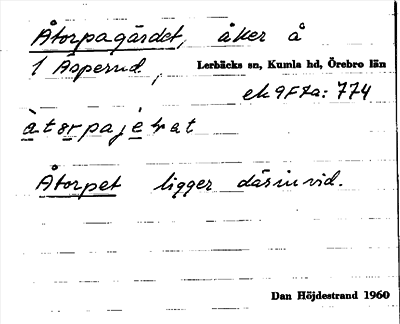 Åtorpagärdet, åker å
1 Asperud, Lerbäcks sn, Kumla hd, Örebro län
ek 9F7a: 774
àtorpajèrat
Åtorpet ligger därinvid.
Dan Höjdestrand 1960